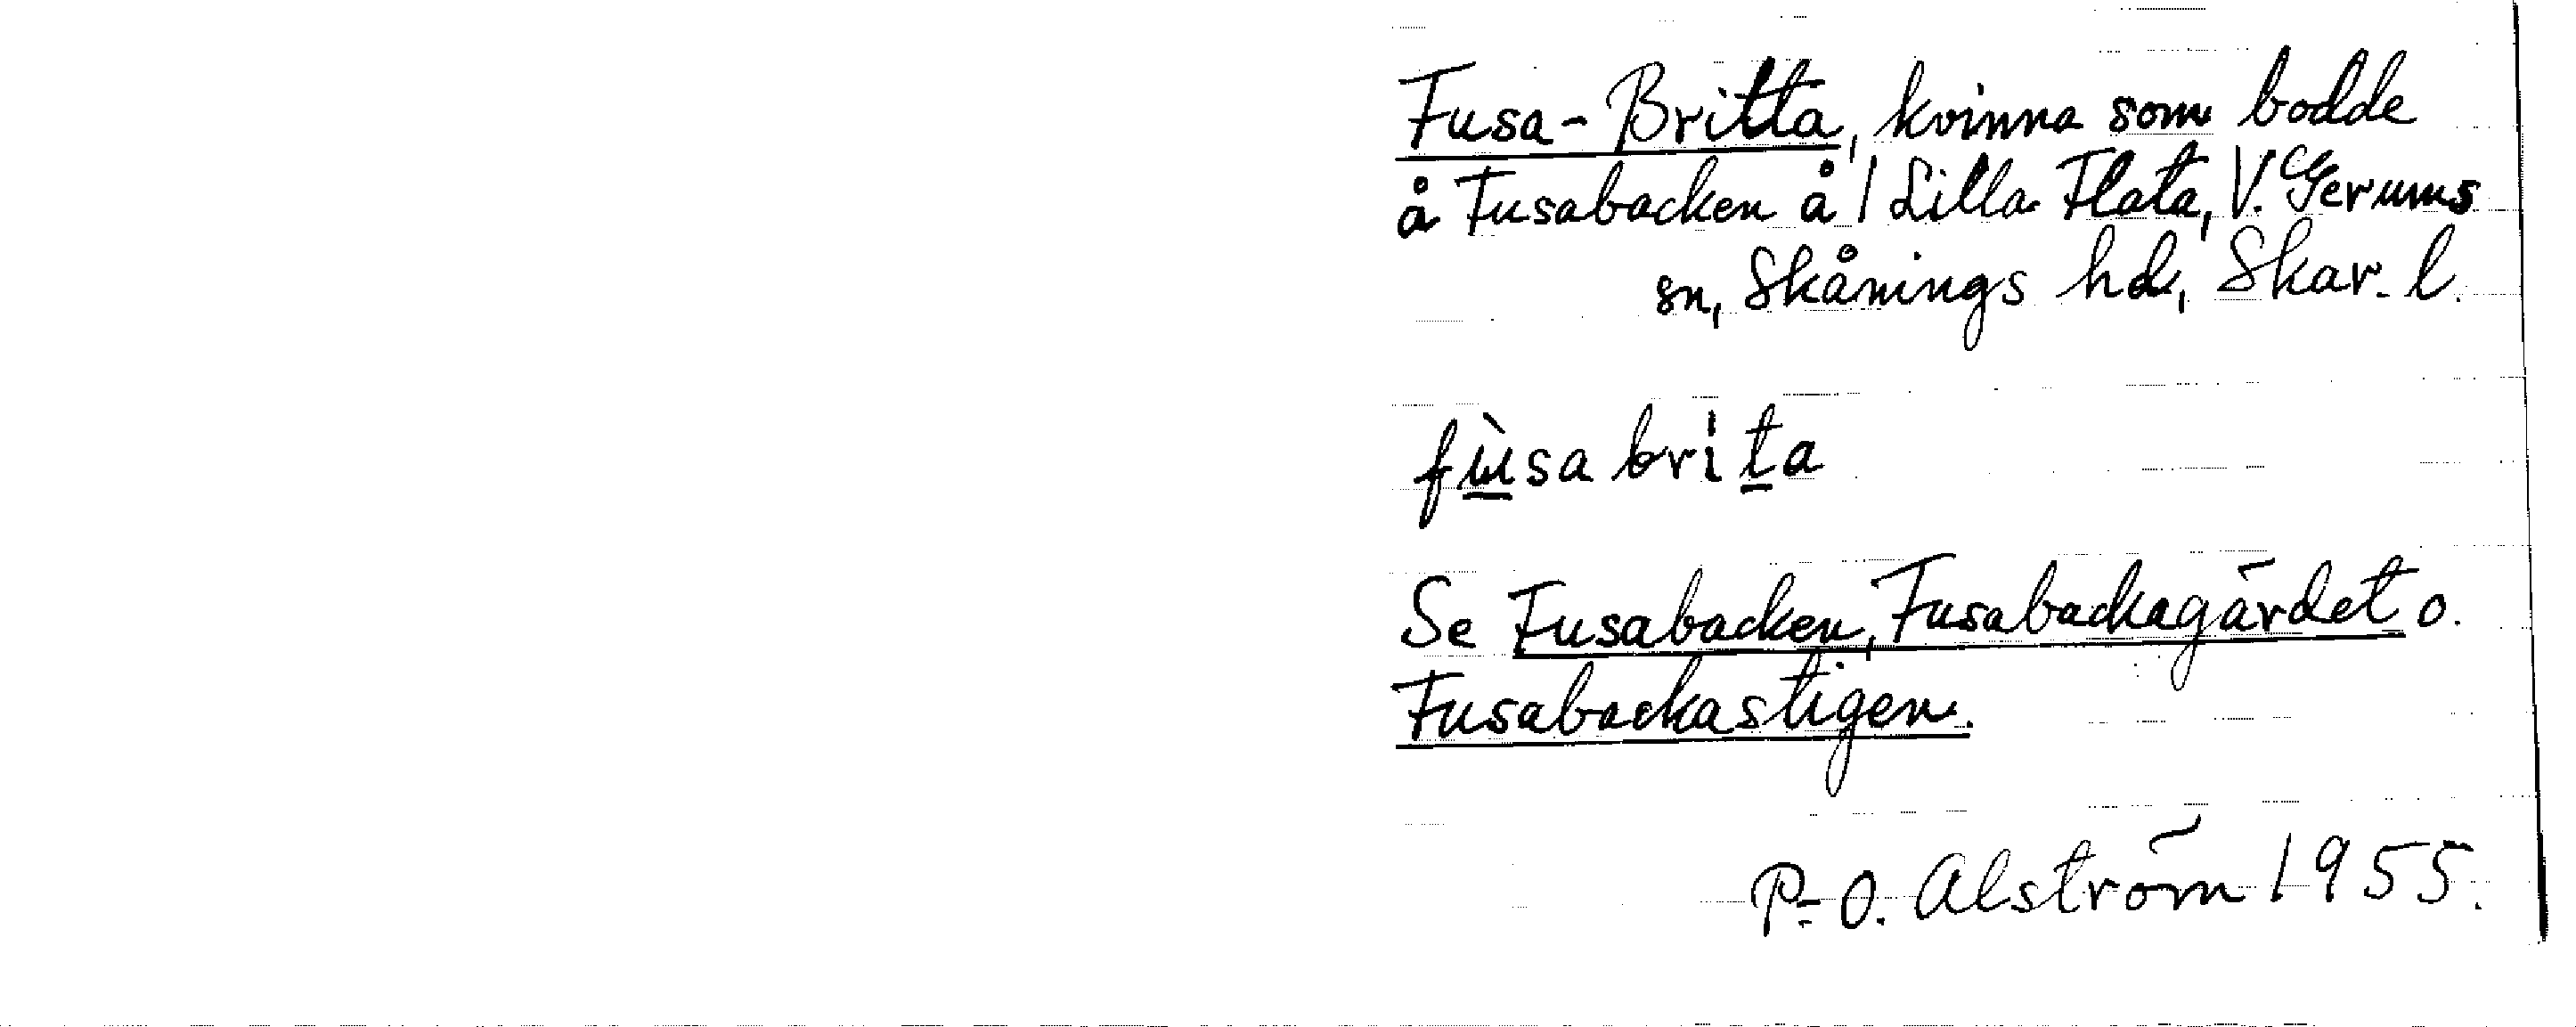 Fusa-Britta, kvinna som bodde
å Fusabacken å 1 Lilla Flata, V. Gerums
sn, Skånings hd, Skar. l.
fùsa brita
Se Fusabacken, Fusabackagärdet o.
Fusabackastigen.
P-O. Alström 1955.